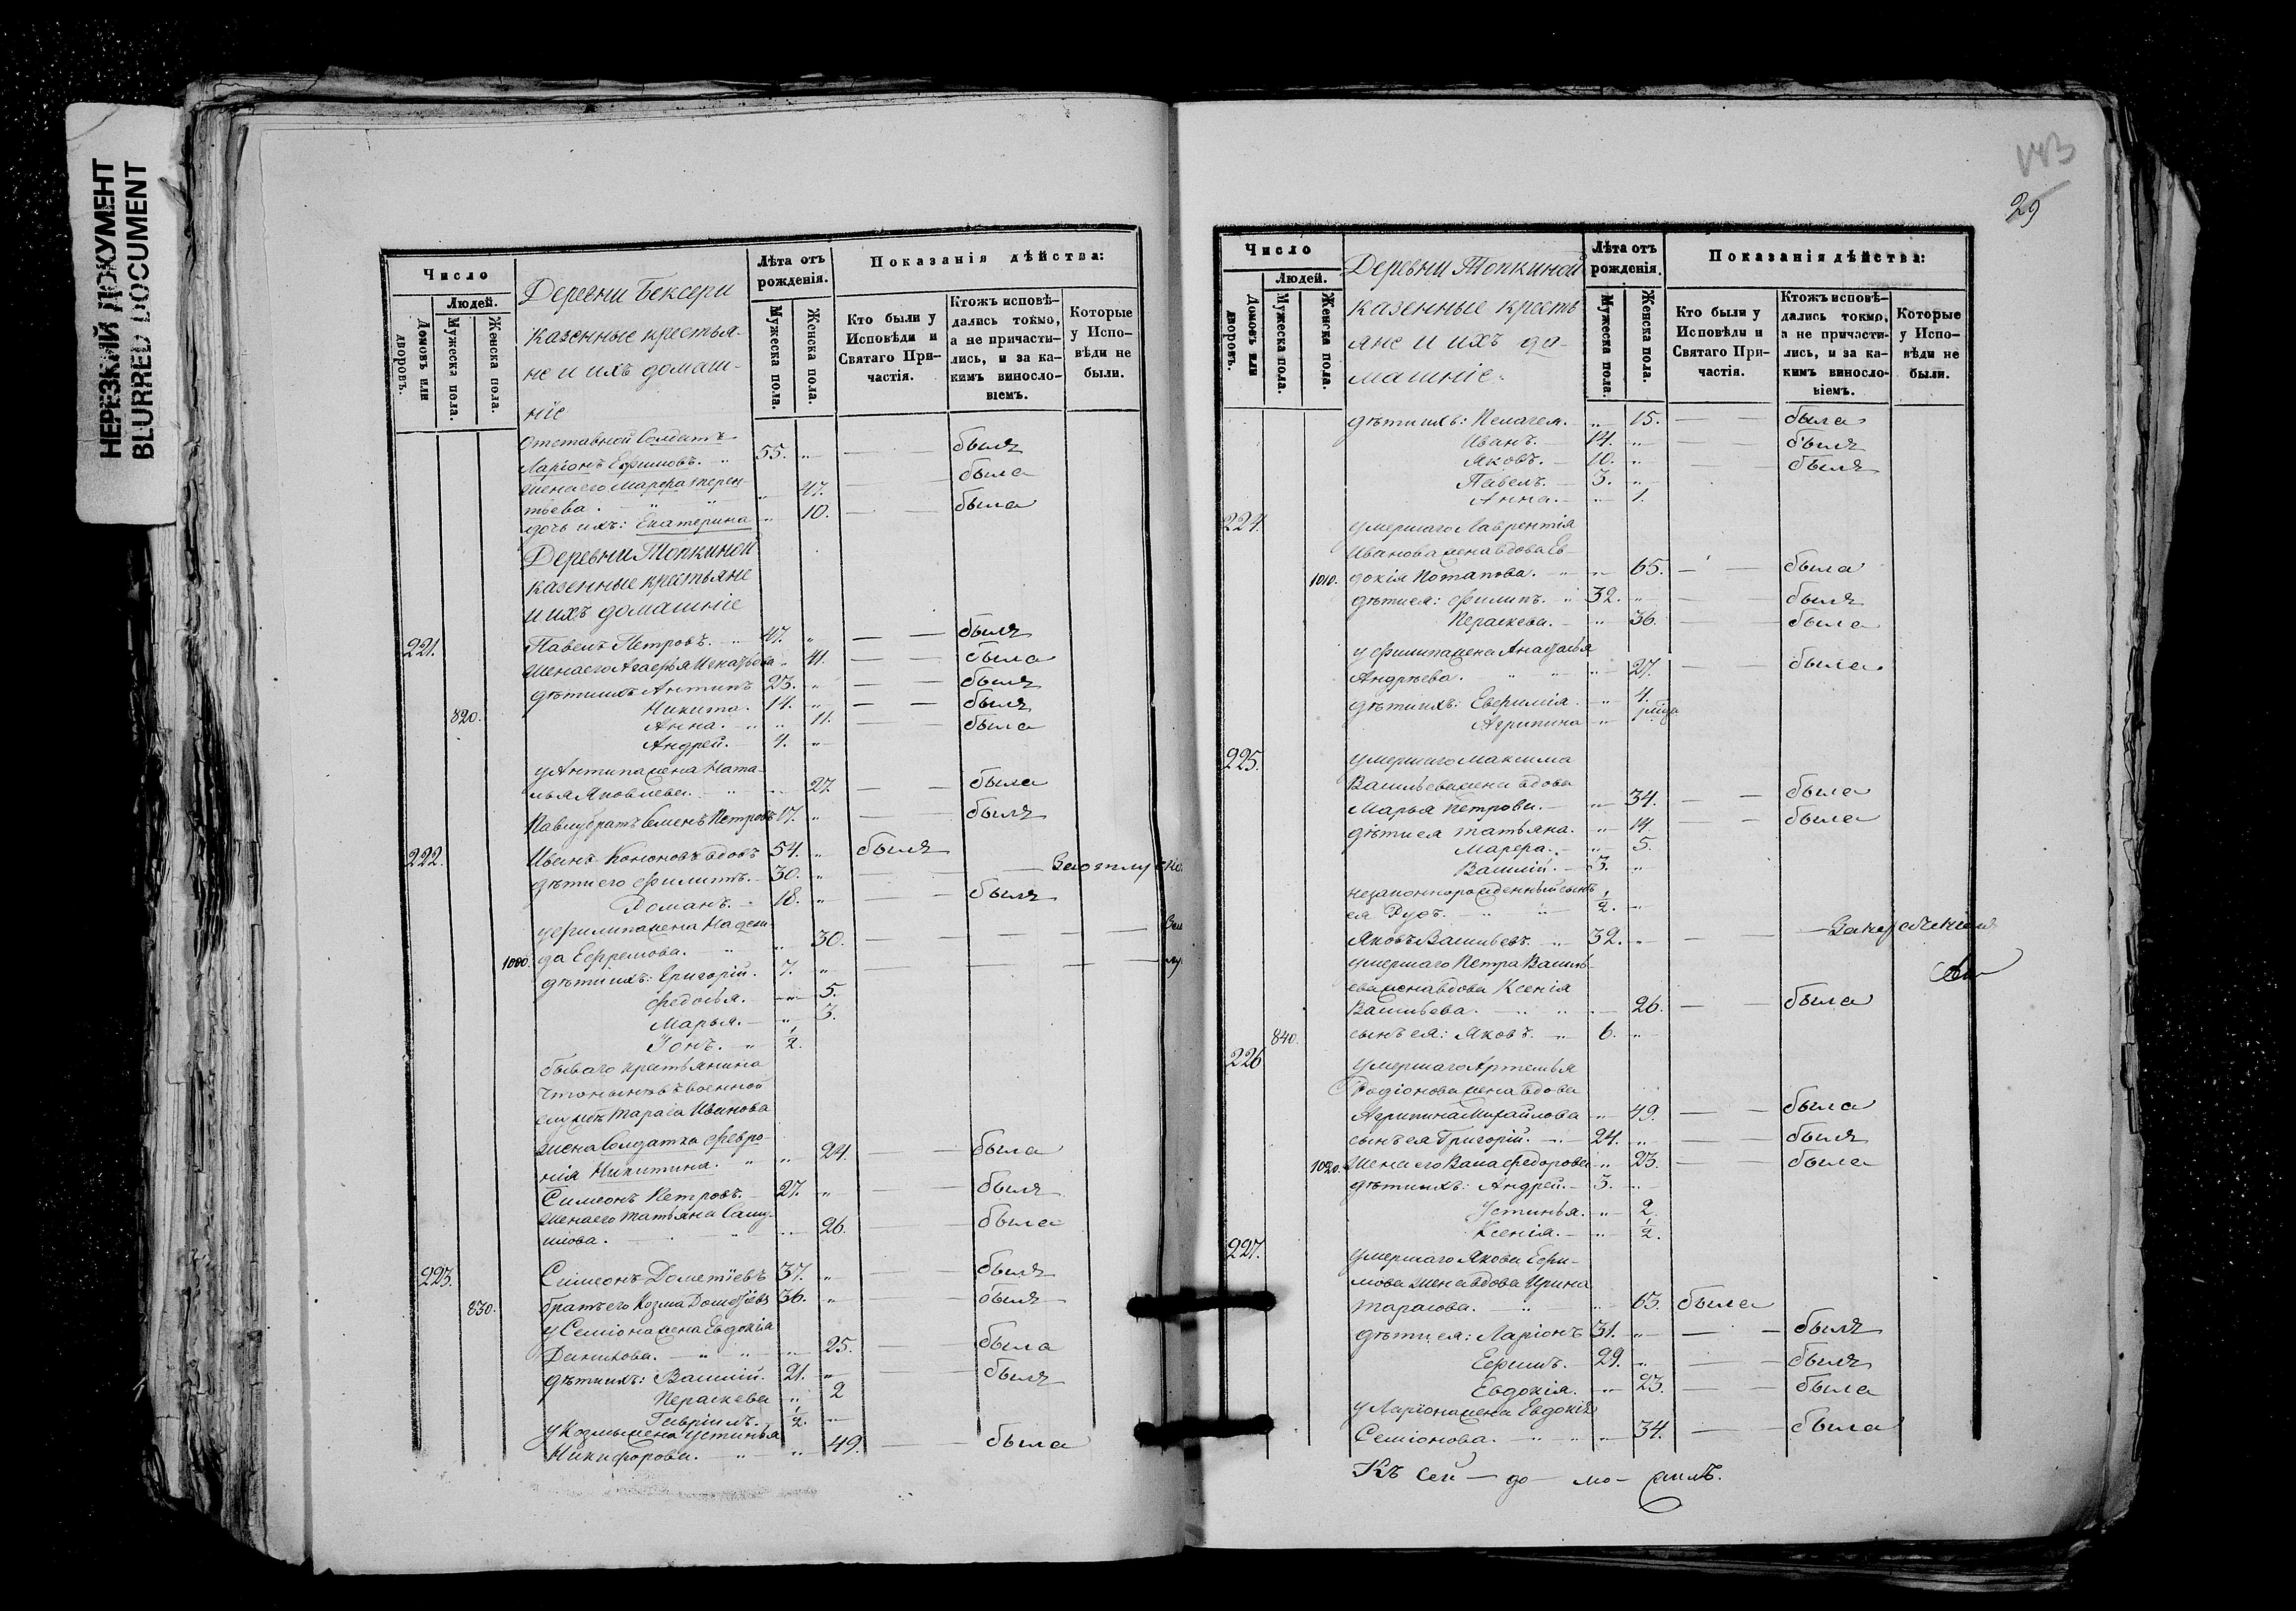 НЕРЕЗКИЙ ДОКУМЕНТ
BLURRED DOCUMENT
Число
Людей.
Домовъ или дворовъ.
Мужеска пола.
Женска пола.
Деревни Бексери
казенные крестья-
не и ихъ домаш-
ніе
Лѣта отъ рожденія.
Мужеска пола.
Женска пола.
Показанія дѣйства:
Кто были у Исповѣди и Святаго Причастія.
Ктожъ исповѣ-
дались токмо,
а не причасти-
лись, и за ка-
кимъ винословіемъ.
Которые у Испо-
вѣди не были.
Отставной Солдатъ
Ларіонъ Ефимовъ. 55. былъ
жена его Марфа
47. была
дочь ихъ: Екатерина 10. была
Деревни Топкиной
казенные крестьяне
и ихъ домашніе
221. Павелъ Петровъ. 47. былъ
жена его Агафья Игнатьева 41. была
дѣти ихъ Антипъ 23. былъ
820. Никита. 14. былъ
Анна. 11. была
Андрей. 4.
у Антипа жена Ната-
лья Яковлева. 27. была
Павлу братъ Семенъ Петровъ 17. былъ
222. Иванъ Кононовъ вдовъ 54. былъ
дѣти его Филиппъ. 30.
Романъ. 18. былъ
у Филипа жена Надеж-
1000. да Ефремова. 30.
дѣти ихъ: Григорій. 7.
Федосья. 5.
Марья. 3.
Іонъ. 1/2.
бываго крестьянина
что нынѣ въ военной
службѣ Тараса Иванова
жена Солдатка Февро-
нія Никитина. 24. была
Симеонъ Петровъ. 27. былъ
жена его Татьяна Саму-
илова. 26. была
223. Симеонъ Дометіевъ 37. былъ
830. братъ его Козма Дометіевъ 36. былъ
у Семіона жена Евдокія
Данилова. 25. была
дѣти ихъ: Василій. 21. былъ
Пераскева 2
Гавріилъ. 1/2.
у Козмы жена Устинья
Никифорова. 49. была
29
Число
Людей.
Домовъ или дворовъ.
Мужеска пола.
Женска пола.
Деревни Топкиной
казенные кресть
яне и ихъ до-
машніе.
Лѣта отъ рожденія.
Мужеска пола.
Женска пола.
Показанія дѣйства:
Кто были у Исповѣди и Святаго Причастія.
Ктожъ исповѣ-
дались токмо,
а не причасти-
лись, и за ка-
кимъ винословіемъ.
Которые у Испо-
вѣди не были.
дѣти ихъ: Пелагея. 15. была
Иванъ. 14. былъ
Яковъ. 10. былъ
Павелъ. 3.
Анна. 1.
224. умершаго Лаврентія
Иванова жена вдова Ев-
1010. докія Потапова. 65. была
дѣти ея: Филипъ. 32. былъ
Пераскева. 36. была
у Филипа жена Анастасья
Андрѣева. 27. была
дѣти ихъ: Евфимія. 4.
Агрипина
225. умершаго Максима
Васильева жена вдова
Марья Петрова. 34. была
дѣти ея Татьяна. 14. была
Марфа. 5.
Василій. 3.
незаконнорожденный сынъ
ея Руфъ. 1/2.
Яковъ Васильевъ. 32.
умершаго Петра Василь-
ева жена вдова Ксенія
Васильева. 26. была
840. сынъ ея: Яковъ. 6.
226 умершаго Артемья
Родіонова жена вдова
Агрипина Михайлова 49. была
сынъ ея Григорій. 24. былъ
1020. жена его Васа Федорова 23. была
дѣти ихъ: Андрей. 3.
Устинья. 2.
Ксенія. 1/2.
227. умершаго Якова Ефи-
мова жена вдова Ирина
Тарасова. 63. была
дѣти ея: Ларіонъ 31. былъ
Ефимъ. 29. былъ
Евдокія. 23. была
у Ларіона жена Евдокія
Семіонова. 34. была
Къ сей — до — мо —